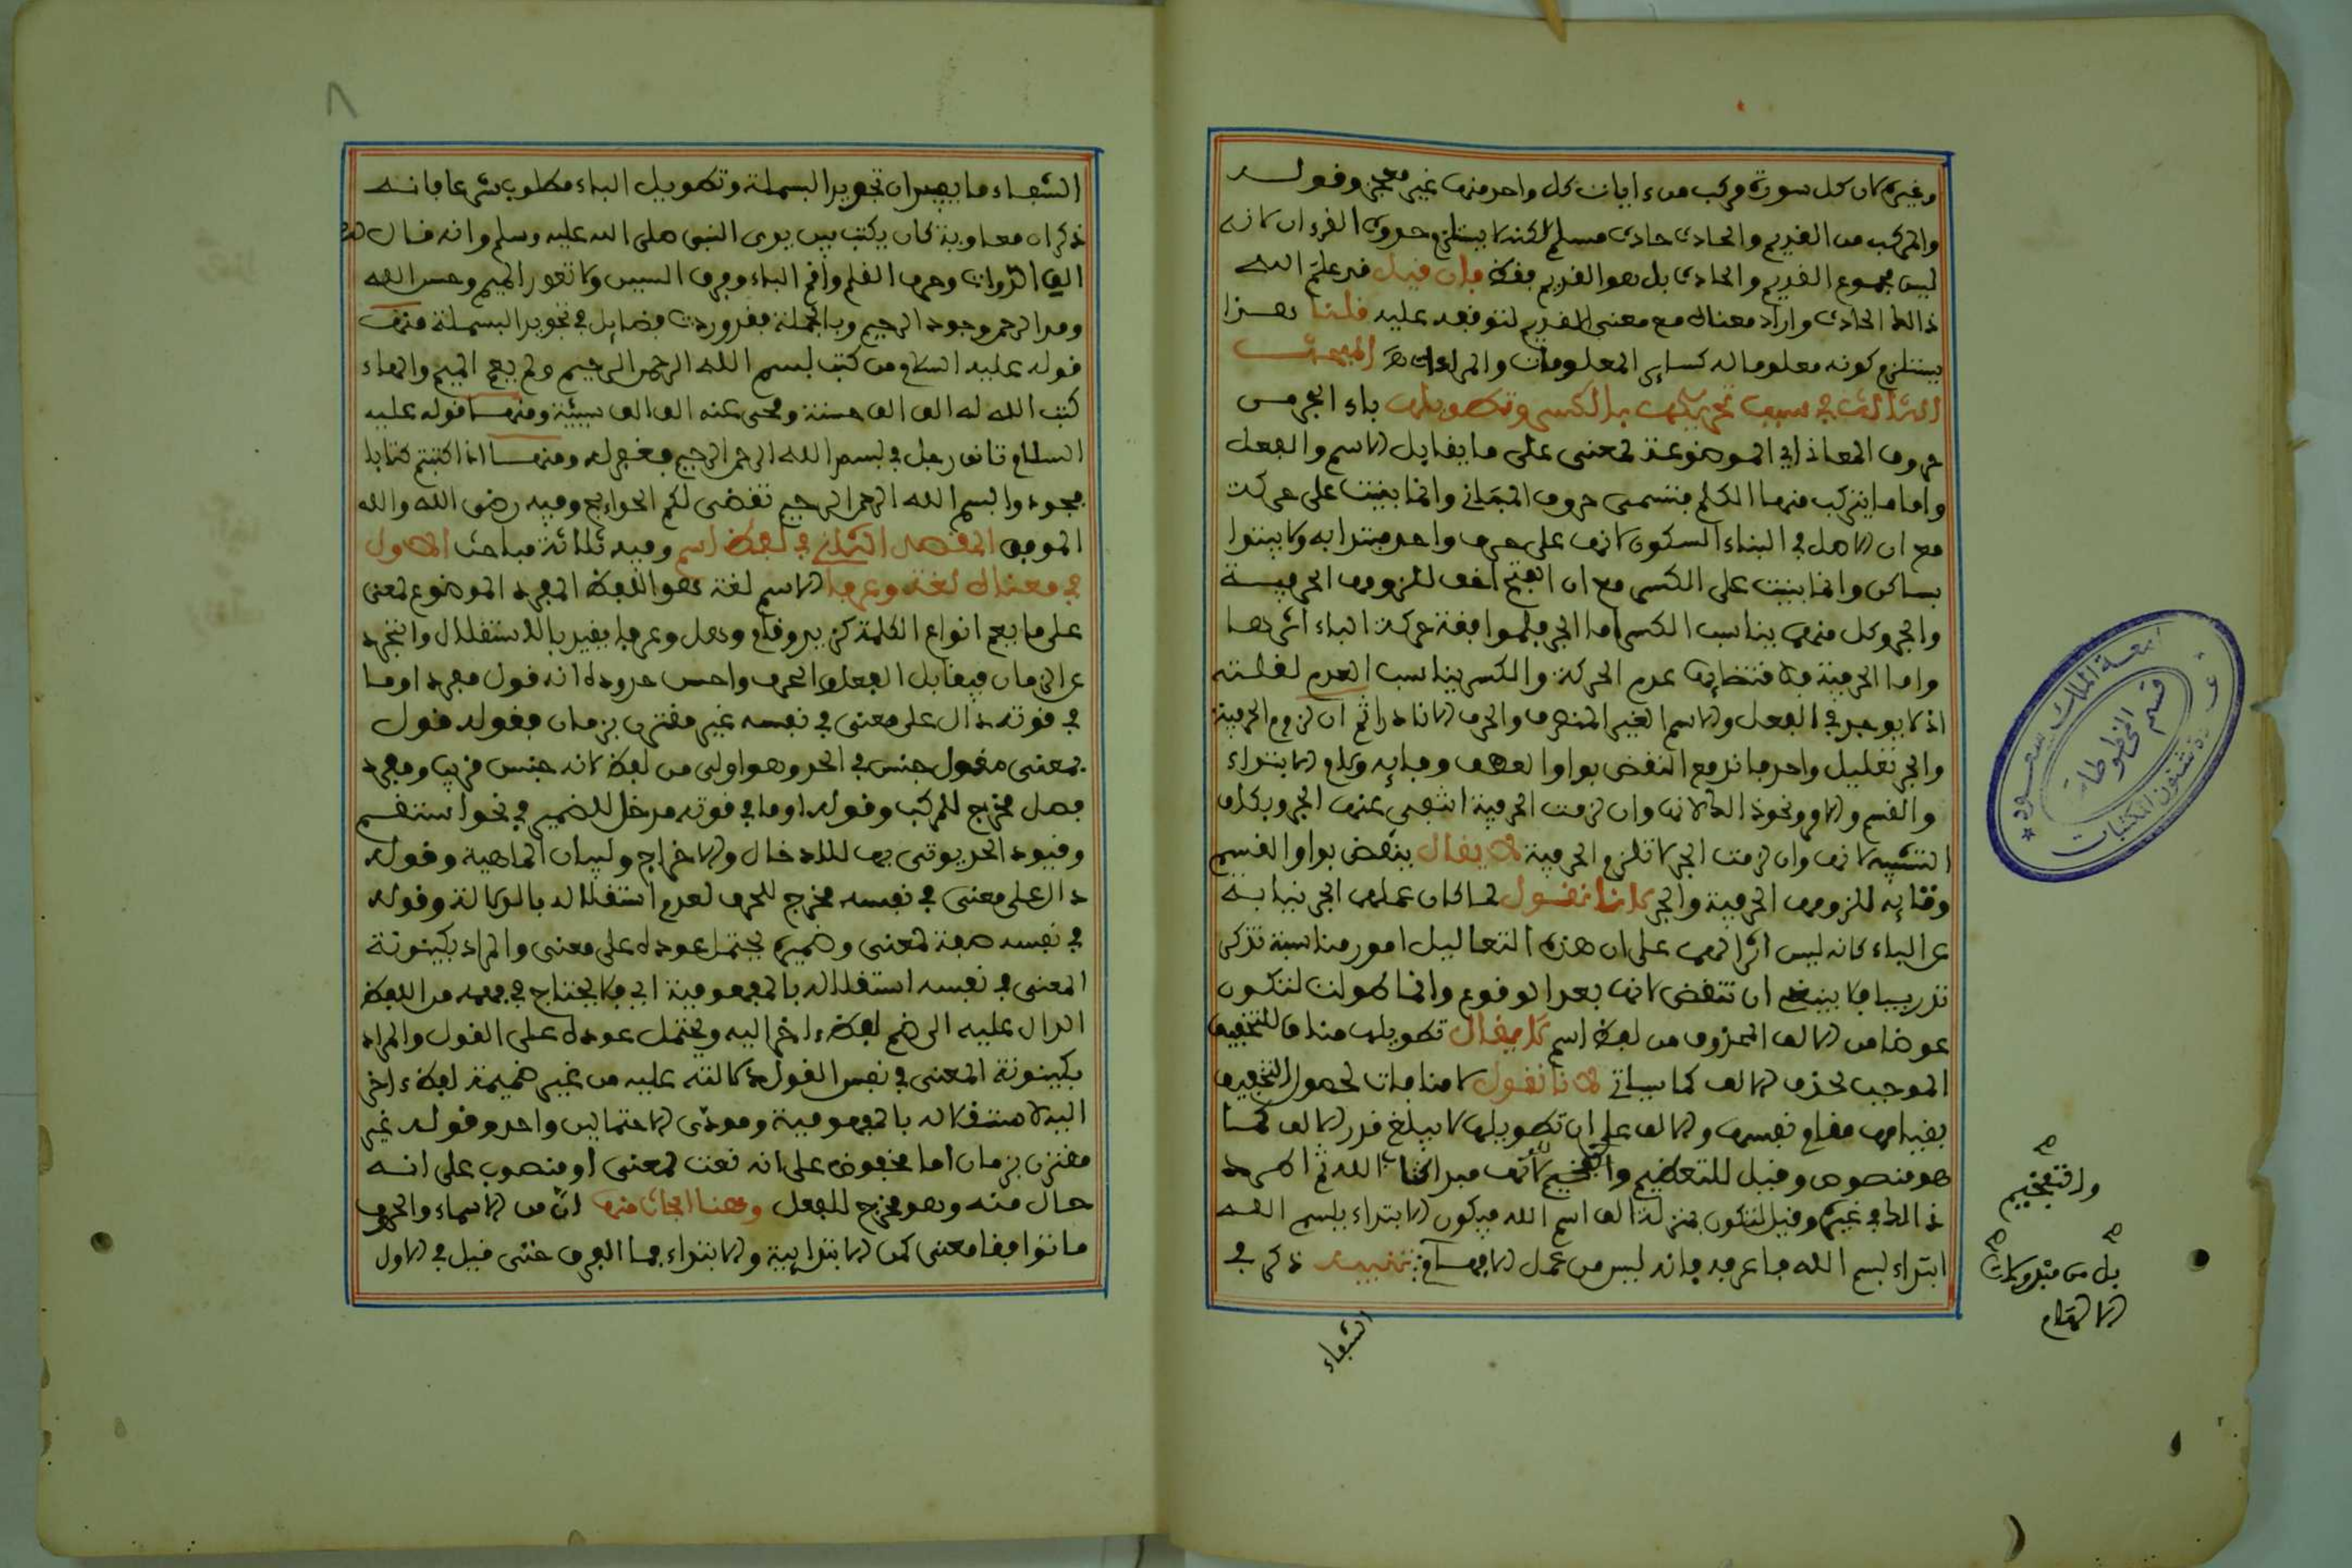 وغيره لان كل سورة مركب من ءايات كل واحد منها غير معجز وقوله
والمركب من القديم والحادث حادث مسلم لكنه لا يستلزم حدوث القرءان لانه
ليس مجموع القديم والحادث بل هو القديم فقط فإن قيل قد علم الله
ذالك الحادث واراد معناه مع معنى القديم لتوقفه عليه قلنا هذا
يستلزم كونه معلوما له كساير المعلومات والمرادات المبحث
الثالث في سبب تحريكها بالكسر وتطويلها باء الجر من
حروف المعاني اي الموضوعة لمعنى على ما يقابل الاسم والفعل
واما ما يتركب منها الكلم فتسمى حروف المباني وانما بنيت على حركة
مع ان الاصل في البناء السكون لانها على حرف واحد مبتدا به ولا يبتدا
بساكن وانما بنيت على الكسر مع ان الفتح اخف للزومها الحرفية
والجر وكل منهما يناسب الكسر اما الجر فلموافقة حركة الباء اثرها
واما الحرفية فلاقتضايها عدم الحركة والكسر يناسب العدم لقلته
اذ لا يوجد في الفعل والاسم الغير المنصرف والحرف الا نادرا ثم ان لزوم الحرفية
والجر تعليل واحد فاندفع النقض بواو العطف وفايه ولام الابتداء
والقسم والامر ونحو ذالك لانها وان لزمت الحرفية انتفى عنها الجر وبكاف
التشبيه لانها وان لزمت الجر لا تلزم الحرفية لا يقال ينقض بواو القسم
وتايه للزومها الحرفية والجر لانا نقول لما كان عملهما الجر نيابة
عن الباء كانه ليس اثرا لهما على ان هذه التعاليل امور مناسبة تذكر
تدريبا فلا ينبغي ان تنقض لانها بعد الوقوع وانما طولت لتكون
عوضا من الالف المحذوف من لفظ اسم لا يقال تطويلها مناف للتخفيف
الموجب لحذف الالف كما سياتي لانا نقول لا منافات لحصول التخفيف
بقيامها مقام نفسها والالف على ان تطويلها لا يبلغ قدر الالف كما
هو منصوص وقيل للتعظيم والتفخيم لانها مبدا كتاب الله ثم اطرد
ذالك في غيره وقيل لتكون بمنزلة الف اسم الله فيكون الابتداء ببسم الله
ابتداء باسم الله فاعرفه فانه ليس من عمل الافهام تنبيه ذكر في
والتفخيم
بل من
الشفاء
٨
الشفاء ما يفيد ان تجويد البسملة وتطويل الباء مطلوب شرعا فانه
ذكر ان معاوية كان يكتب بين يدي النبي صلى الله عليه وسلم وانه قال له
الق الدواة وحرف القلم واقم الباء وفرق السين ولا تعور الميم وحسن الله
ومد الرحمن وجود الرحيم وبالجملة فقد وردت فضايل في تجويد البسملة منها
قوله عليه السلام من كتب بسم الله الرحمن الرحيم ولم يعم الميم والهاء
كتب الله له الف الف حسنة ومحى عنه الف الف سيئة ومنها قوله عليه
السلام تانق رجل في بسم الله الرحمن الرحيم فغفر له ومنها اذا كتبتم كتابا
فجودوا بسم الله الرحمن الرحيم تقضى لكم الحوايج وفيه رضى الله والله
الموفق المقصد الثاني في لفظ اسم وفيه ثلاثة مباحث الاول
في معناه لغة وعرفا الاسم لغة هو اللفظ المفرد الموضوع لمعنى
على ما يعم انواع الكلمة كزيد وقام وهل وعرفا يقيد بالاستقلال والتجرد
عن الزمان فيقابل الفعل والحرف واحسن حدوده انه قول مفرد او ما
في قوته دال على معنى في نفسه غير مقترن بزمان فقوله قول
بمعنى مقول جنس في الحد وهو اولى من لفظ لانه جنس قريب ومفرد
فصل مخرج للمركب وقوله او ما في قوته مدخل للضمير في نحو استقم
وقيود الحد يوتى بها للادخال والاخراج ولبيان الماهية وقوله
دال على معنى في نفسه مخرج للحرف لعدم استقلاله بالدلالة وقوله
في نفسه صفة لمعنى وضميره يحتمل عوده على معنى والمراد بكينونة
المعنى في نفسه استقلاله بالمفهومية اي فلا يحتاج في فهمه من اللفظ
الدال عليه الى ضم لفظ ءاخر اليه ويحتمل عوده على القول والمراد
بكينونة المعنى في نفس القول دلالته عليه من غير ضميمة لفظ ءاخر
اليه لاستقلاله بالمفهومية ومودى الاحتمالين واحد وقوله غير
مقترن بزمان اما مخفوض على انه نعت لمعنى او منصوب على انه
حال منه وهو مخرج للفعل وهنا ابحاث منها ان من الاسماء والحروف
ما توافقا معنى كمن الابتدايية والابتداء فما الفرق حتى قيل في الاول